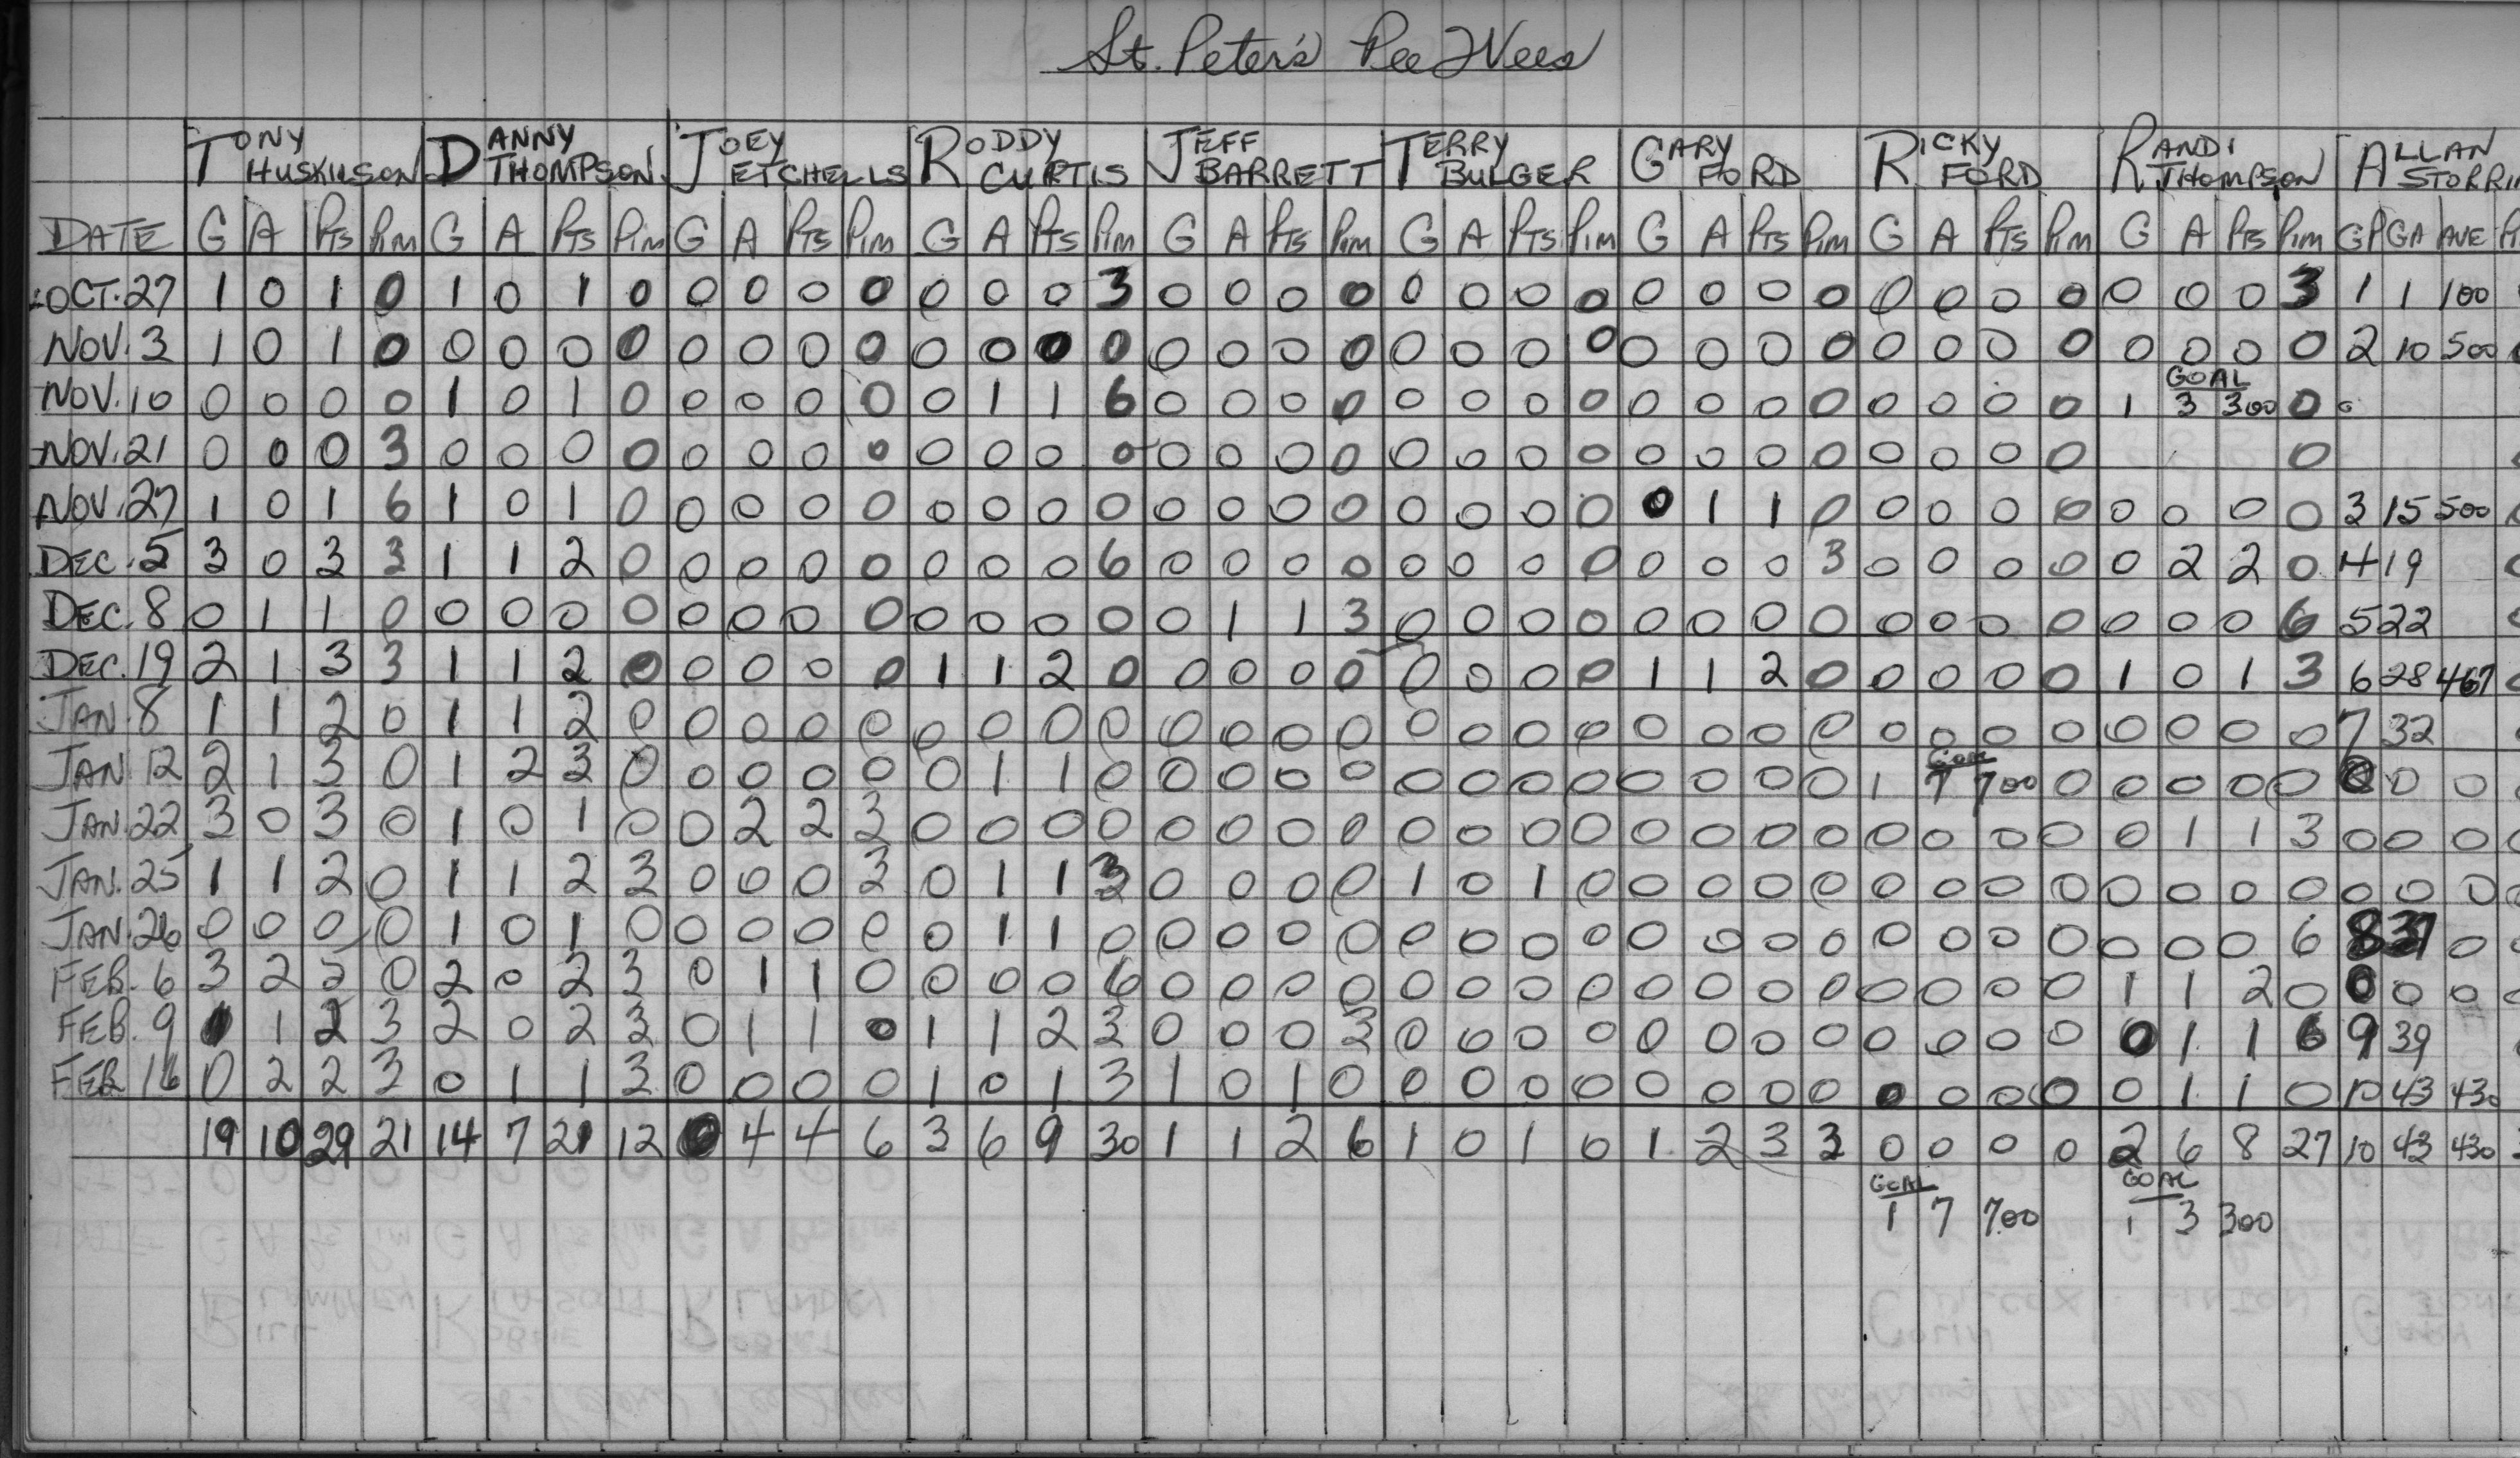 St. Peter's Pee Wees
TONY HUSKILSON DANNY THOMPSON JOEY ETCHELLS RODDY CURTIS JEFF BARRETT TERRY BULGER GARY FORD RICKY FORD RANDI THOMPSON ALLAN STORRI
DATE G A PTS PIM G A PTS PIM G A PTS PIM G A PTS PIM G A PTS PIM G A PTS PIM G A PTS PIM G A PTS PIM G A PTS PIM GP GA AVE
OCT. 27 1 0 1 0 1 0 1 0 0 0 0 0 0 0 0 3 0 0 0 0 0 0 0 0 0 0 0 0 0 0 0 0 0 0 0 3 1 1 100
NOV. 3 1 0 1 0 0 0 0 0 0 0 0 0 0 0 0 0 0 0 0 0 0 0 0 0 0 0 0 0 0 0 0 0 0 0 0 0 2 10 500
GOAL
NOV. 10 0 0 0 0 1 0 1 0 0 0 0 0 0 1 1 6 0 0 0 0 0 0 0 0 0 0 0 0 0 0 0 0 1 3 300 0 0
NOV. 21 0 0 0 3 0 0 0 0 0 0 0 0 0 0 0 0 0 0 0 0 0 0 0 0 0 0 0 0 0 0 0 0 0
NOV. 27 1 0 1 6 1 0 1 0 0 0 0 0 0 0 0 0 0 0 0 0 0 0 0 0 0 1 1 0 0 0 0 0 0 0 0 0 3 15 500
DEC. 5 3 0 3 3 1 1 2 0 0 0 0 0 0 0 0 6 0 0 0 0 0 0 0 0 0 0 0 3 0 0 0 0 0 2 2 0 4 19
DEC. 8 0 1 1 0 0 0 0 0 0 0 0 0 0 0 0 0 0 1 1 3 0 0 0 0 0 0 0 0 0 0 0 0 0 0 0 6 5 22
DEC. 19 2 1 3 3 1 1 2 0 0 0 0 0 1 1 2 0 0 0 0 0 0 0 0 0 1 1 2 0 0 0 0 0 1 0 1 3 6 28 467
JAN. 8 1 1 2 0 1 1 2 0 0 0 0 0 0 0 0 0 0 0 0 0 0 0 0 0 0 0 0 0 0 0 0 0 0 0 0 0 7 32
GOAL
JAN. 12 2 1 3 0 1 2 3 0 0 0 0 0 0 1 1 0 0 0 0 0 0 0 0 0 0 0 0 0 1 7 700 0 0 0 0 0 0 0 0
JAN. 22 3 0 3 0 1 0 1 0 0 2 2 3 0 0 0 0 0 0 0 0 0 0 0 0 0 0 0 0 0 0 0 0 0 1 1 3 0 0 0
JAN. 25 1 1 2 0 1 1 2 3 0 0 0 3 0 1 1 3 0 0 0 0 1 0 1 0 0 0 0 0 0 0 0 0 0 0 0 0 0 0 0
JAN. 26 0 0 0 0 1 0 1 0 0 0 0 0 0 1 1 0 0 0 0 0 0 0 0 0 0 0 0 0 0 0 0 0 0 0 0 6 8 37 0
FEB. 6 3 2 5 0 2 0 2 3 0 1 1 0 0 0 0 6 0 0 0 0 0 0 0 0 0 0 0 0 0 0 0 0 1 1 2 0 0 0 0
FEB. 9 1 2 3 2 0 2 3 0 1 1 0 1 1 2 3 0 0 0 3 0 0 0 0 0 0 0 0 0 0 0 0 0 1 1 6 9 39
FEB. 16 0 2 2 3 0 1 1 3 0 0 0 0 1 0 1 3 1 0 1 0 0 0 0 0 0 0 0 0 0 0 0 0 0 1 1 0 10 43 430
19 10 29 21 14 7 21 12 0 4 4 6 3 6 9 30 1 1 2 6 1 0 1 0 1 2 3 3 0 0 0 0 2 6 8 27 10 43 430
GOAL GOAL
1 7 700 1 3 300